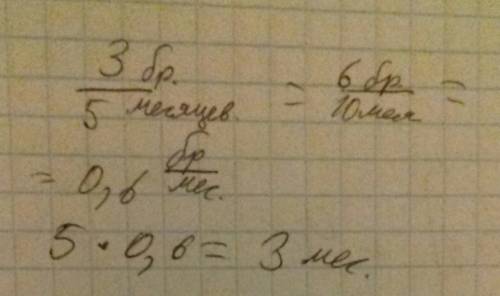 3 бр. / 5 месяцев. = 6 бр / 10 мес =
= 0,6 бр / мес.
5 • 0,6 = 3 мес.